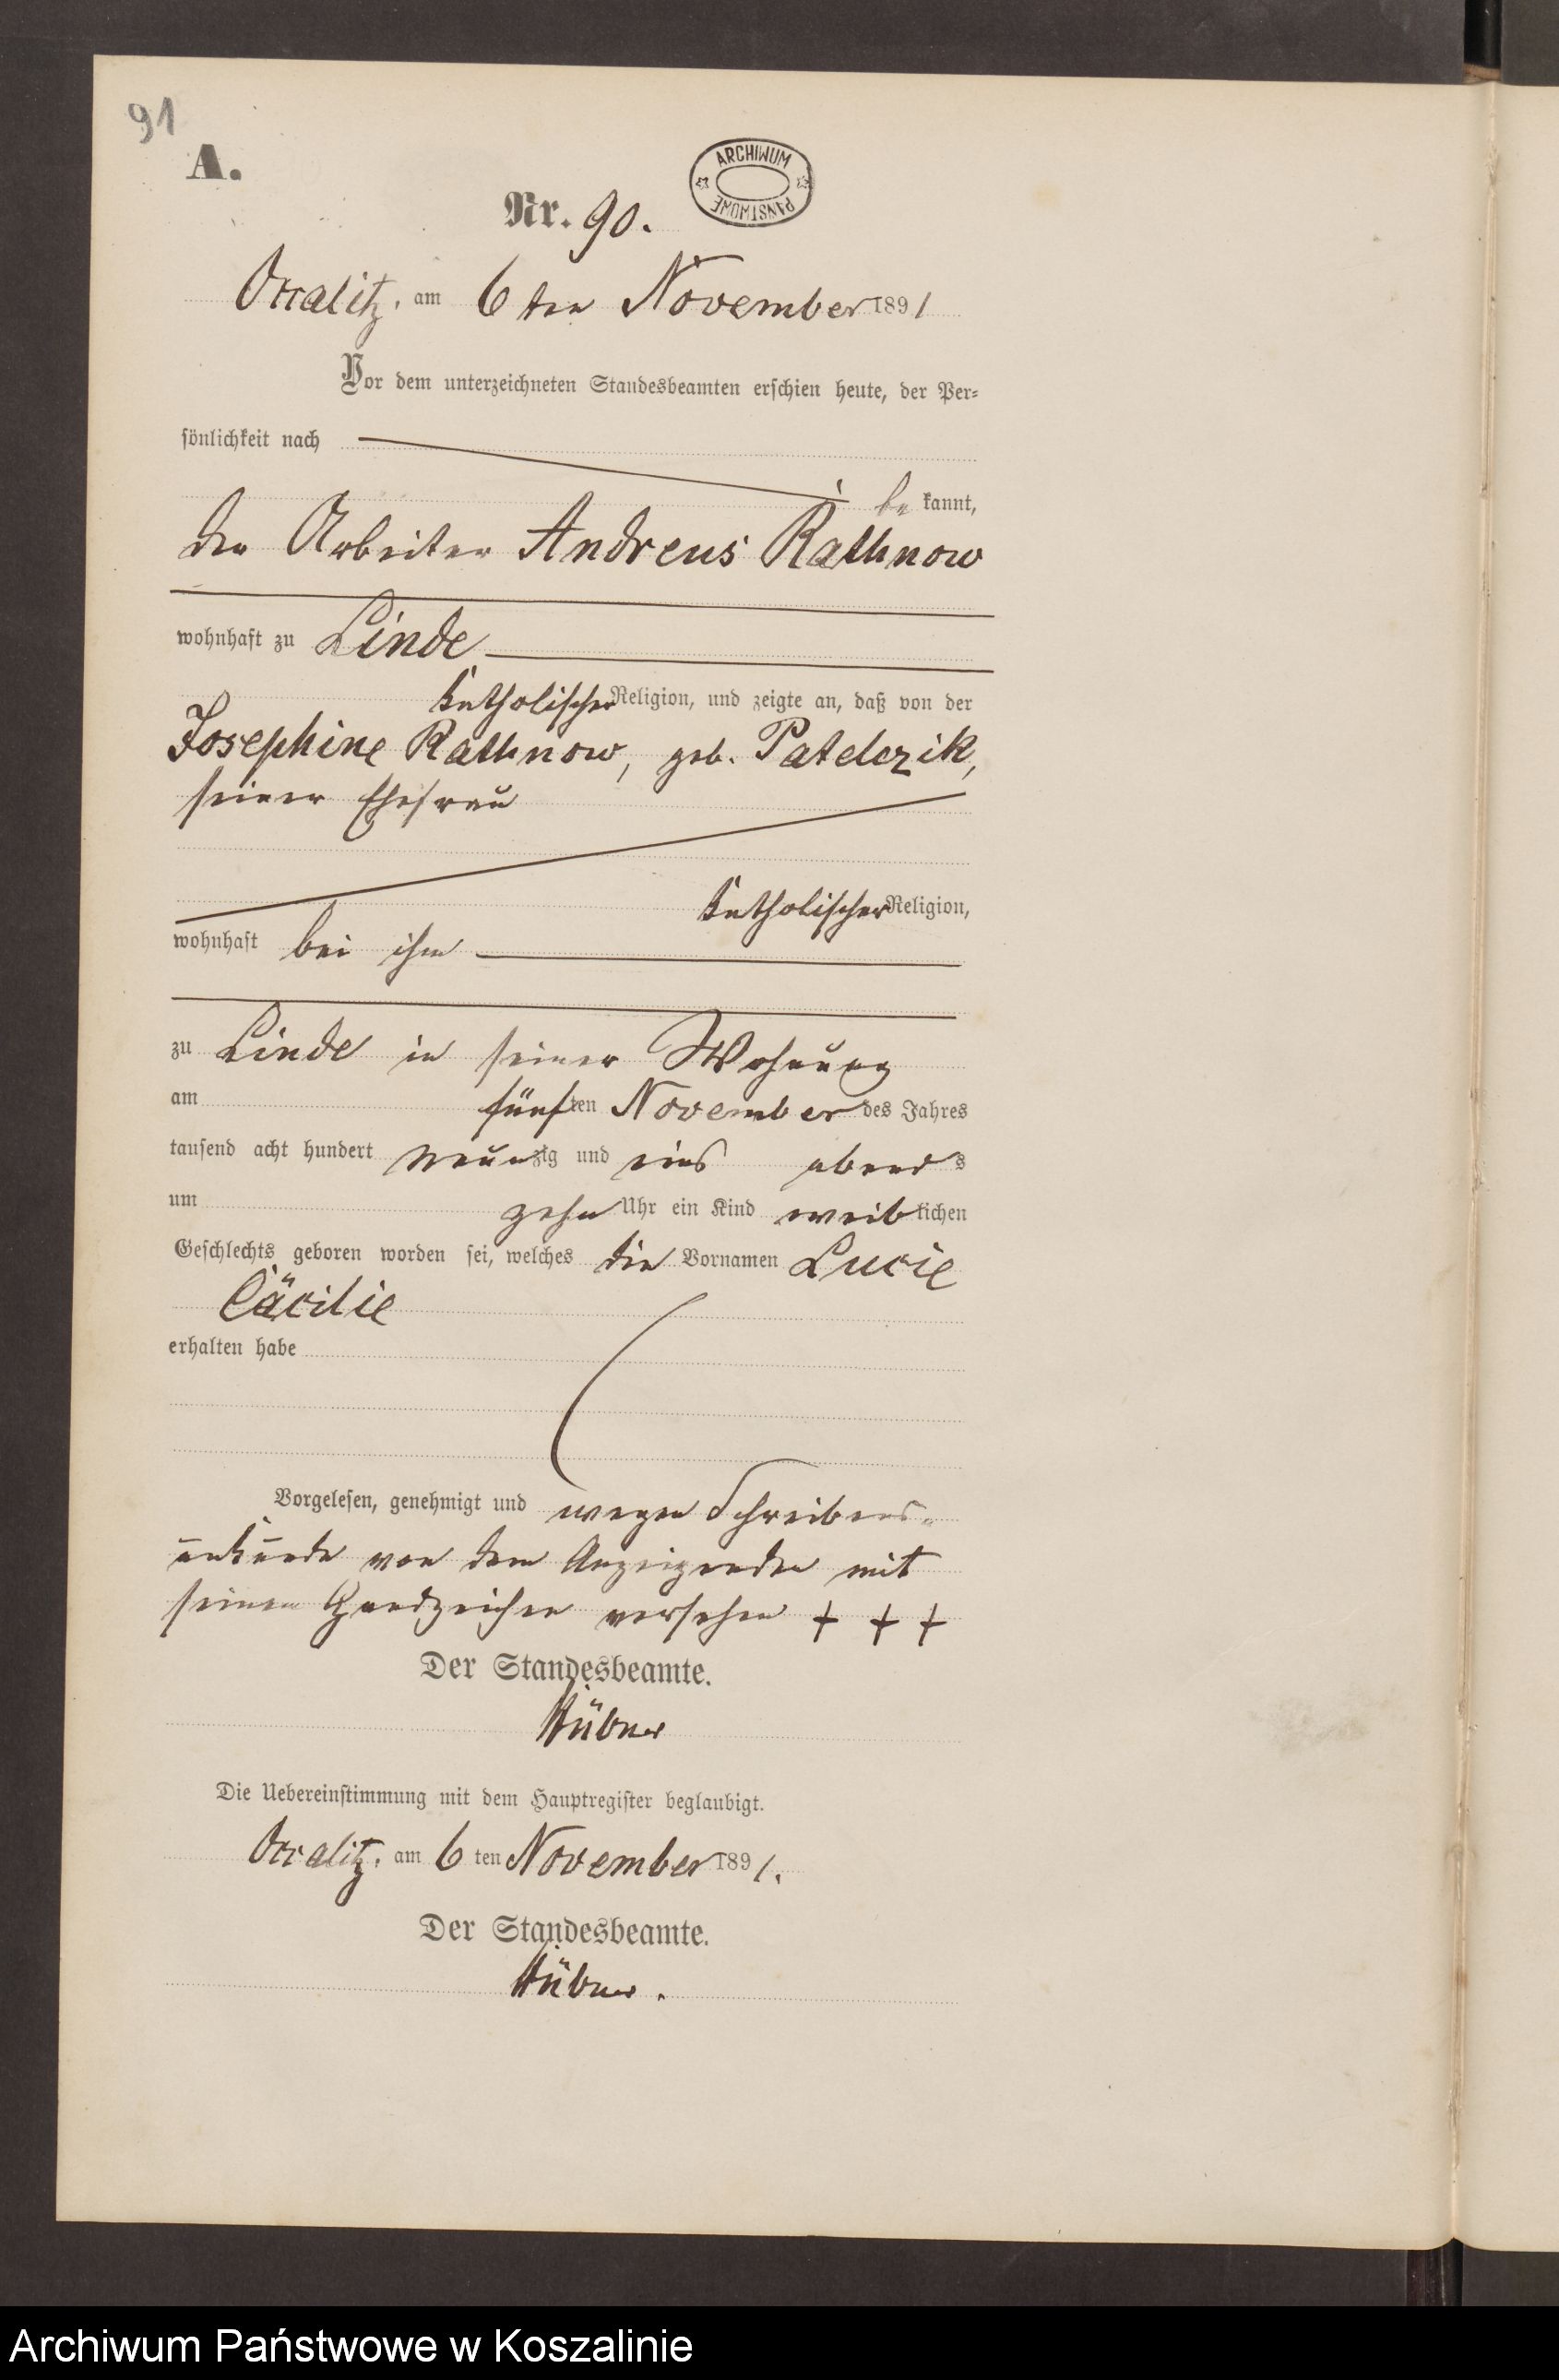 91
A.
ARCHIWUM PAŃSTWOWE
Nr. 90.
Occalitz, am 6 ten November 1891
Vor dem unterzeichneten Standesbeamten erschien heute, der Per-
sönlichkeit nach
be kannt,
der Arbeiter Andreas Rathnow
wohnhaft zu Linde
katholischer Religion, und zeigte an, daß von der
Josephine Rathnow, geb. Patelczik,
seiner Ehefrau
katholischer Religion,
wohnhaft bei ihm
zu Linde in seiner Wohnung
am fünf ten November des Jahres
tausend acht hundert neun zig und eins abend s
um zehn Uhr ein Kind weib lichen
Geschlechts geboren worden sei, welches die Vornamen Lucie
Cäcilie
erhalten habe
Vorgelesen, genehmigt und wegen Schreibens-
unkunde von dem Anzeigenden mit
seinen Handzeichen versehen + + +
Der Standesbeamte.
Hübner
Die Uebereinstimmung mit dem Hauptregister beglaubigt.
Occalitz, am 6 ten November 1891.
Der Standesbeamte.
Hübner.
Archiwum Państwowe w Koszalinie